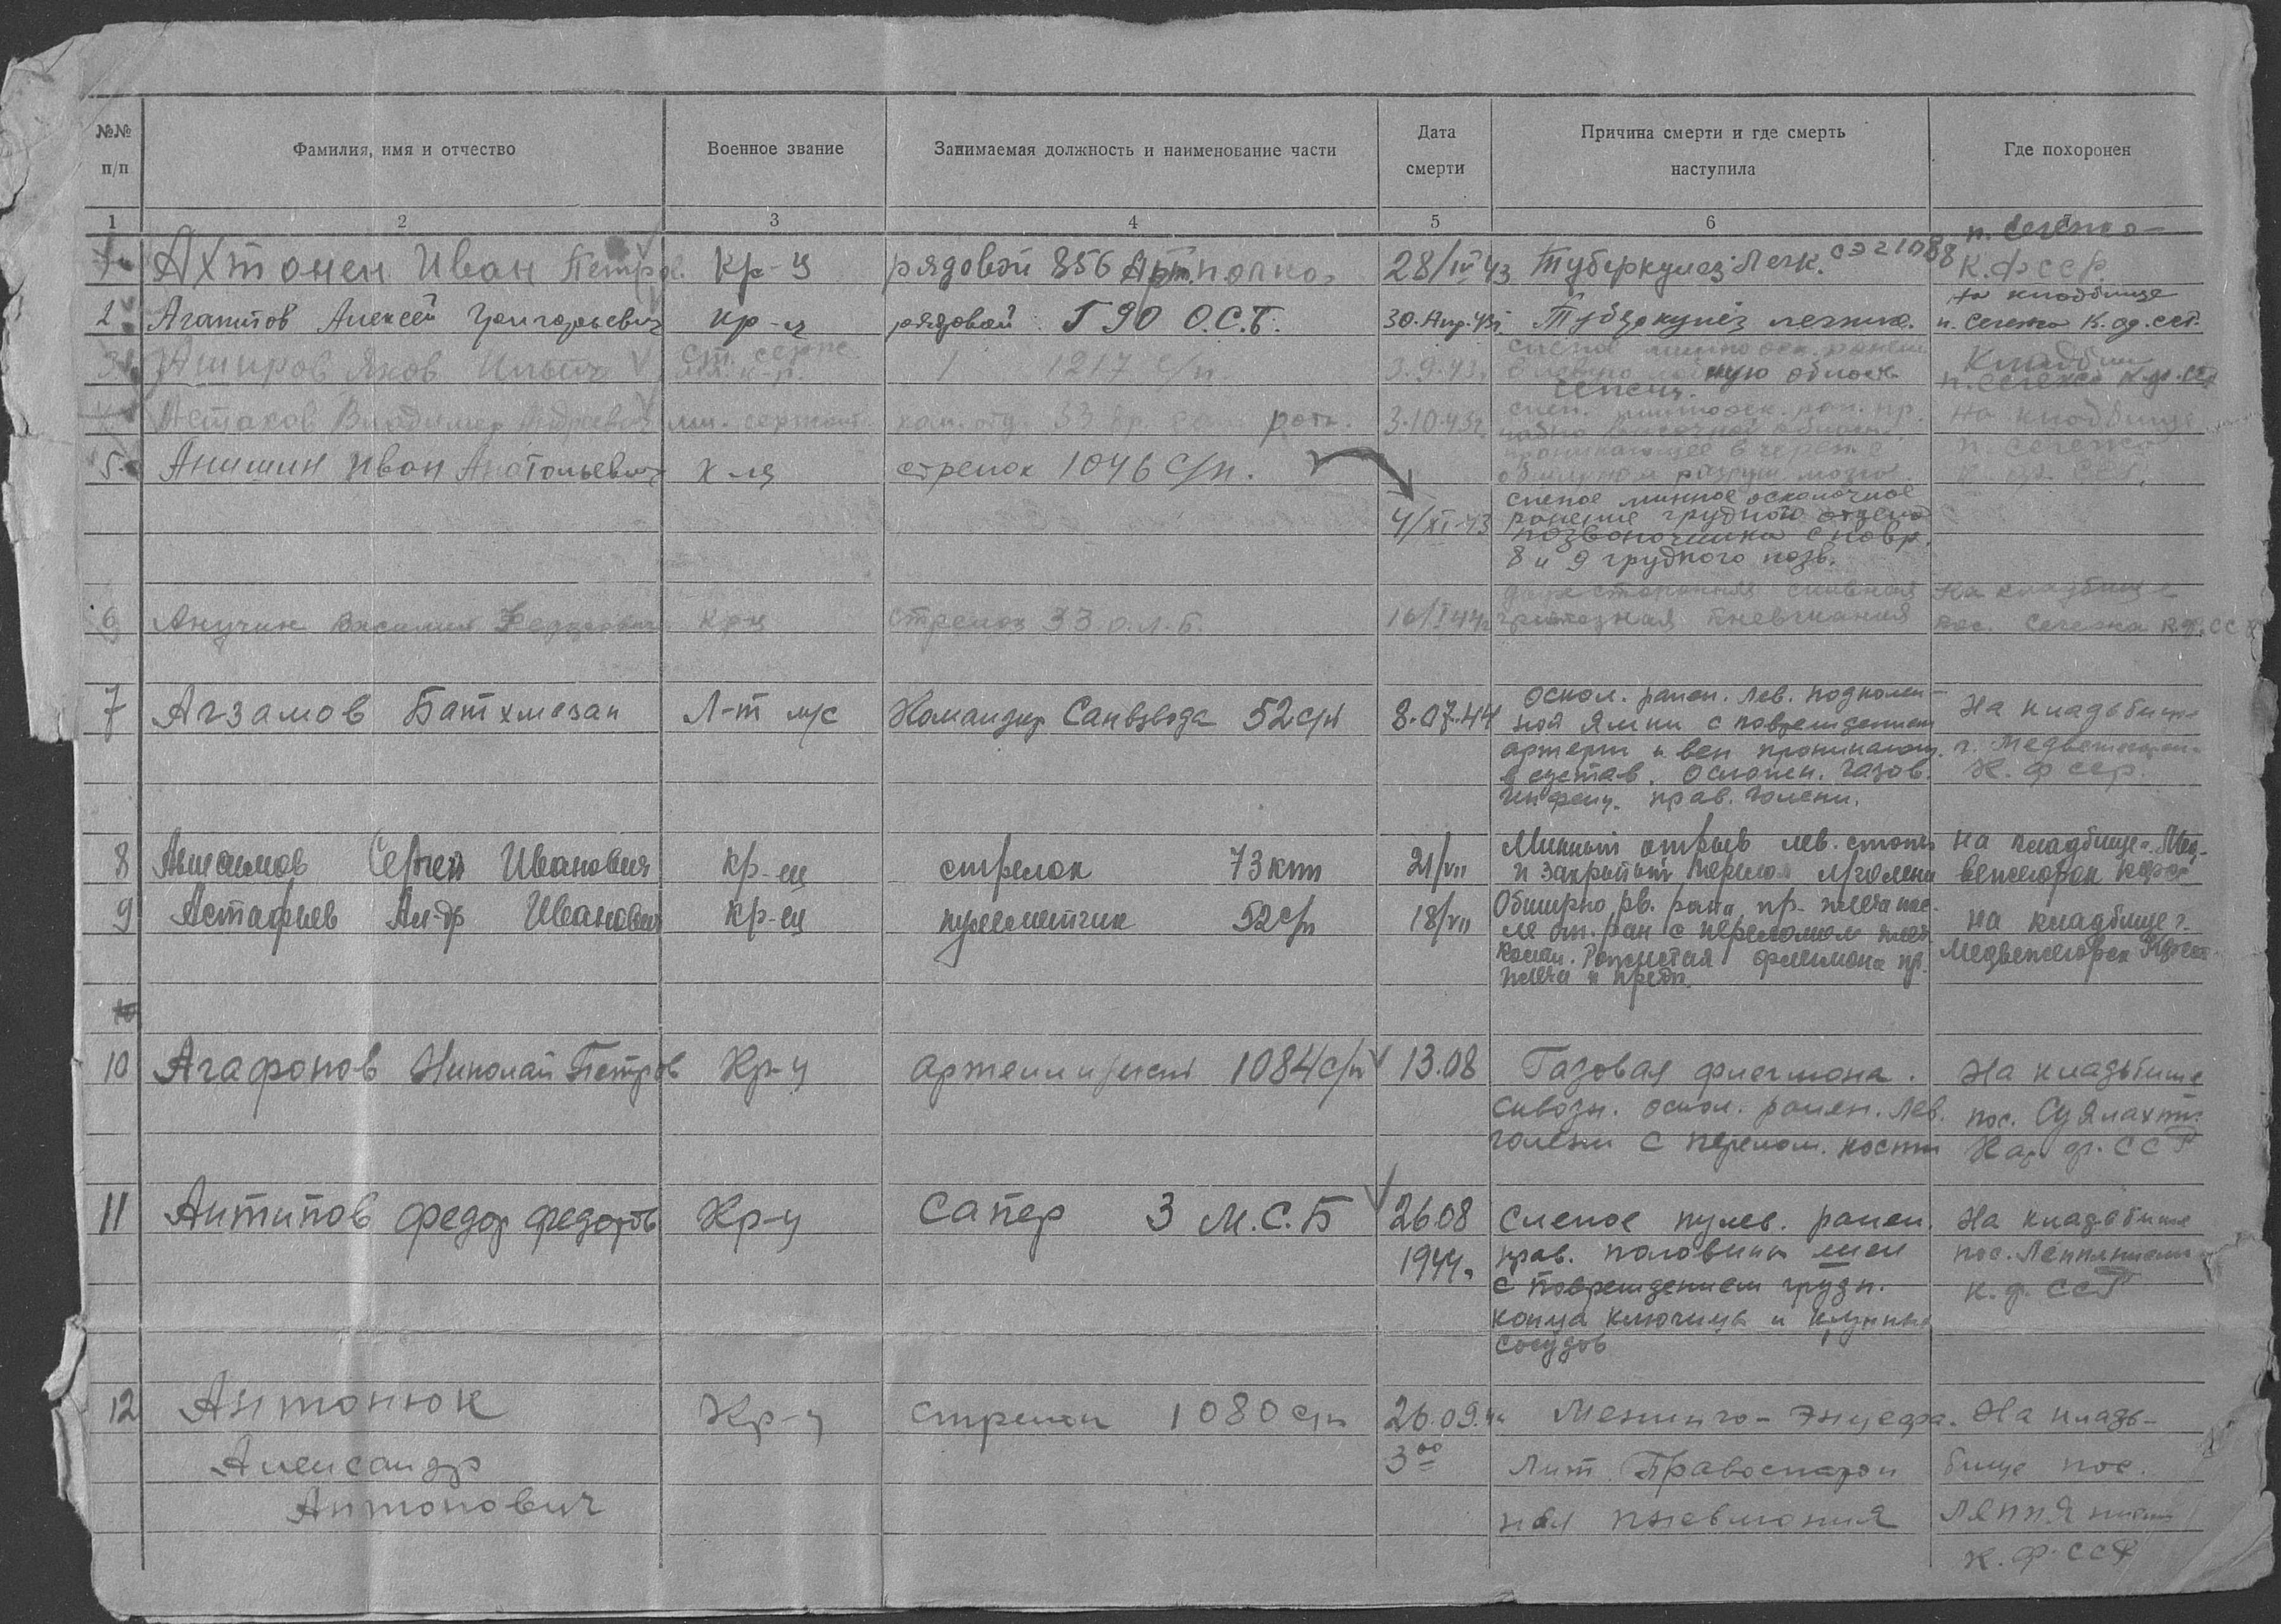 №№ п/п
Фамилия, имя и отчество
Военное звание
Занимаемая должность и наименование части
Дата смерти
Причина смерти и где смерть наступила
Где похоронен
1 2 3 4 5 6
1 Ахтонен Иван Петров. Кр-ц рядовой 856 Арт.полка 28/IV 43 Туберкулез Легк. п. Сегежа
К.ФССР
2 Агапитов Алексей Григорьевич кр-ц рядовой 790 О.С.Б. 30.Апр.43г Туберкулёз легких. на кладбище
п. Сегежа К.ф.ССР.
3 Аширов Яков Ильич ст. серж. 1217 с/п. 3.9.43г слепое минно оск. ранен.
ную область
Сепсис.
Кладбищ
п. Сегежа К.ф.ССР
4 Астахов Владимир мл. сержант ком. отд. 33 роты. 3.10.43г слеп. миннооск. ран. пр.
проникающее в череп с
обширном разруш. мозга
на кладбище
п. Сегежа
К.ф. ССР.
5 Анишин Иван Анатольевич к-ц стрелок 1046 С/п.
4/XI-43 слепое минное осколочное
ранение грудного отдела
позвоночника с повр.
8 и 9 грудного позв.
6 Анучин Василий Федорович кр-ц стрелок 33 о.л.б. 16/I 44г двухсторонняя сливная
гриппозная пневмания
На кладбище
пос. Сегежа К.ф.ССР
7 Агзамов Батхмезан Л-т м/с Командир Санвзвода 52 с/п 8.07.44 Оскол. ранен. лев. подколен-
ной ямки с повреждением
артерии и вен проникающ.
в сустав. Осложнен. газов.
инфекц. прав. голени.
На кладьбище
г. Медвежьегорск
К.ф ССР.
8 Анисимов Сергей Иванович кр-ец стрелок 73 кпп 21/VII Минный отрыв лев. стопы
и закрытый перелом пр голени
на кладбище г. Мед-
вежегорск Кфсср
9 Астафьев Ал-др Иванович кр-ец пулеметчик 52 с/п 18/VII Обширно рв. рана пр. плеча пос-
ле оп. ран с переломом плеч
костн. флегмона пр.
плеча и предп.
на кладбище г.
Медвежегорск Кфсср
10 Агафонов Николай Петров Кр-ц артеллирист 1084 с/п 13.08 Газовая флегмона.
Сквозн. оскол. ранен. лев.
голени с перелом. кости
На кладьбище
пос. Суялахти
Кар. ф. ССР
11 Антипов Федор Федоров Кр-ц сапер 3 М.С.Б 26.08
1944г Слепое пулев. ранен.
прав. половины шеи
с повреждением грудн.
конца ключицы и крупных
сосудов
На кладьбище
пос. Леппясюрья
К.ф. ССР
12 Антонюк
Александр
Антонович
Кр-ц стрелок 1080 сп 26.09.44
3⁰⁰
Менинго-Энцефа-
лит. Правосторон
ная пневмония
На кладь-
бище пос.
К.Ф.ССР